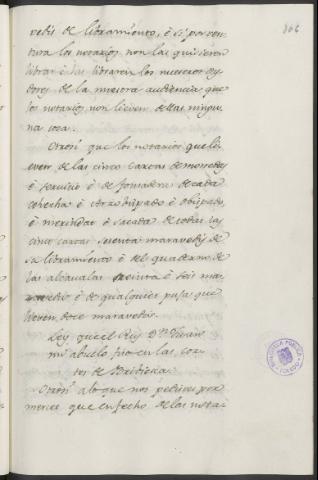 vedis de libramiento, è si por ven
tura los notarios non las quisieren
librar è las libraren los nuestros Oy
dores de la nuestra audiencia que
los notarios non lieven dellas ningu
na cosa.
Otrosi que los notarios que li
even de las cinco cartas de monedas
è servicio è de fonsadera de cada
cohecha è Arzobispado è Obispado,
è merindat è sacada de todas las
cinco cartas sesenta maravedis de
sa libramiento è del quaderno de
las alcavalas treinta è seis mar
avedis è de qualquier puja que
lieven doce maravedis.
Ley que el Rey Dn. Juan
mi abuelo fizo en las cor
tes de Bribiesca.
Otrosi a lo que nos pedistes por
merced que en fecho de las nota-
BIBLIOTECA PUBLICA
TOLEDO